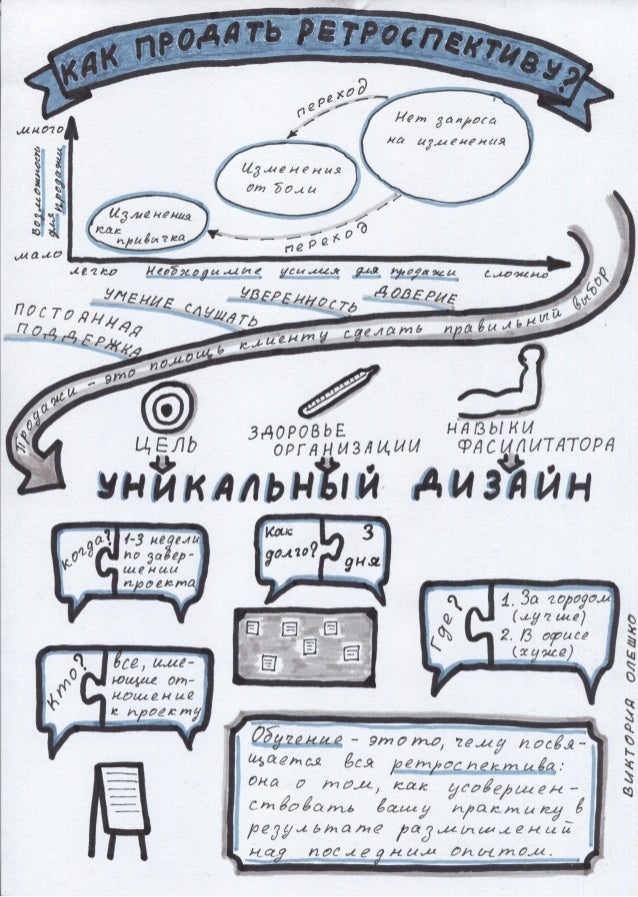 КАК ПРОДАТЬ РЕТРОСПЕКТИВУ?
много
возможности
для продажи
мало
переход
Нет запроса
на изменения
Изменения
от боли
Изменения
как
привычка
переход
легко необходимые усилия для продажи сложно
ПОСТОЯННАЯ
ПОДДЕРЖКА
УМЕНИЕ СЛУШАТЬ
УВЕРЕННОСТЬ
ДОВЕРИЕ
Продажи – это помощь клиенту сделать правильный выбор
ЦЕЛЬ
ЗДОРОВЬЕ
ОРГАНИЗАЦИИ
НАВЫКИ
ФАСИЛИТАТОРА
УНИКАЛЬНЫЙ ДИЗАЙН
Когда?
1-3 недели
по завер-
шении
проекта
Как
долго?
3
дня
Где?
1. За городом
(лучше)
2. В офисе
(хуже)
Кто?
все, име-
ющие от-
ношение
к проекту
Обучение – это то, чему посвя-
щается вся ретроспектива:
она о том, как усовершен-
ствовать вашу практику в
результате размышлений
над последним опытом.
ВИКТОРИЯ ОЛЕШКО